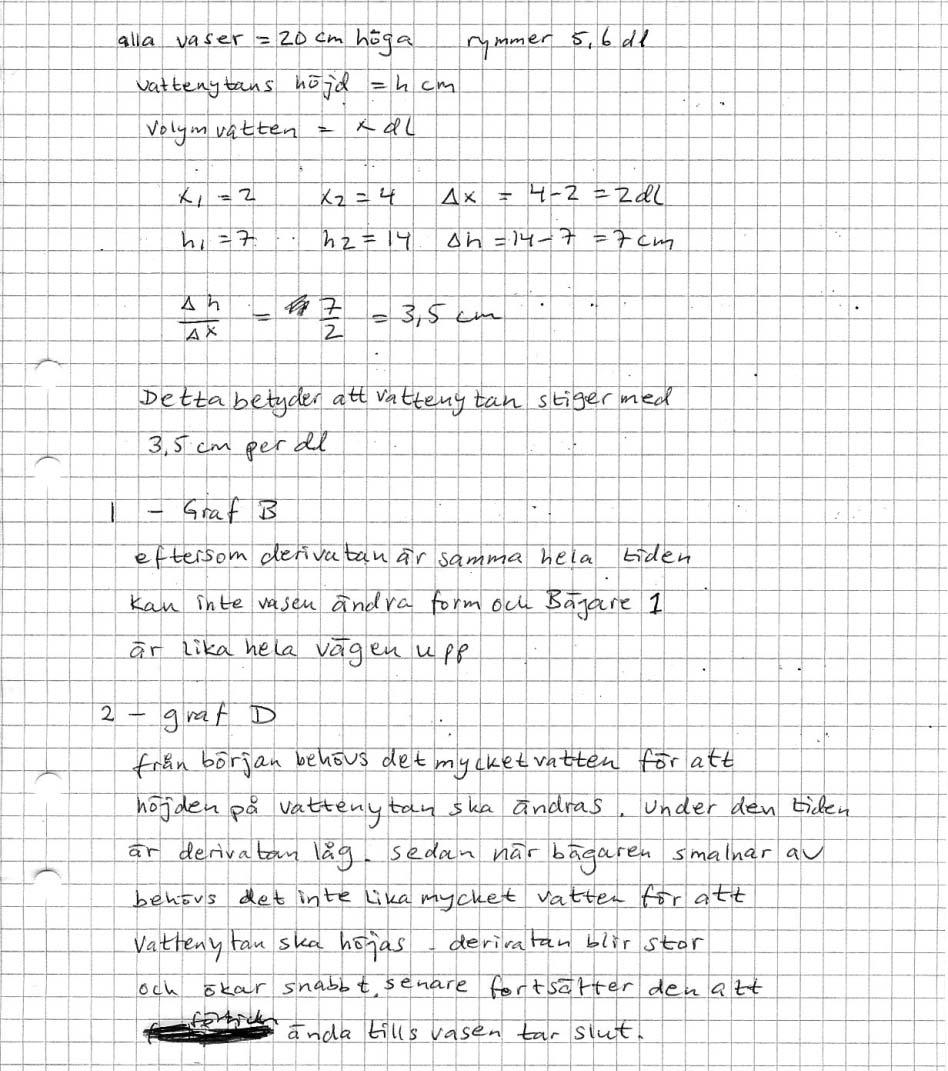 alla vaser = 20 cm höga rymmer 5,6 dl
vattenytans höjd = h cm
Volym vatten = x dl
x₁ = 2 x₂ = 4 Δx = 4-2 = 2dl
h₁ = 7 h₂ = 14 Δh = 14-7 = 7 cm
Δh/Δx = 7/2 = 3,5 cm
Detta betyder att vattenytan stiger med
3,5 cm per dl
1 - Graf B
eftersom derivatan är samma hela tiden
kan inte vasen ändra form och Bägare 1
är lika hela vägen upp
2 - graf D
från början behövs det mycket vatten för att
höjden på vattenytan ska ändras. Under den tiden
är derivatan låg. sedan när bägaren smalnar av
behövs det inte lika mycket vatten för att
Vattenytan ska höjas - derivatan blir stor
och ökar snabbt, senare fortsätter den att
ända tills vasen tar slut.